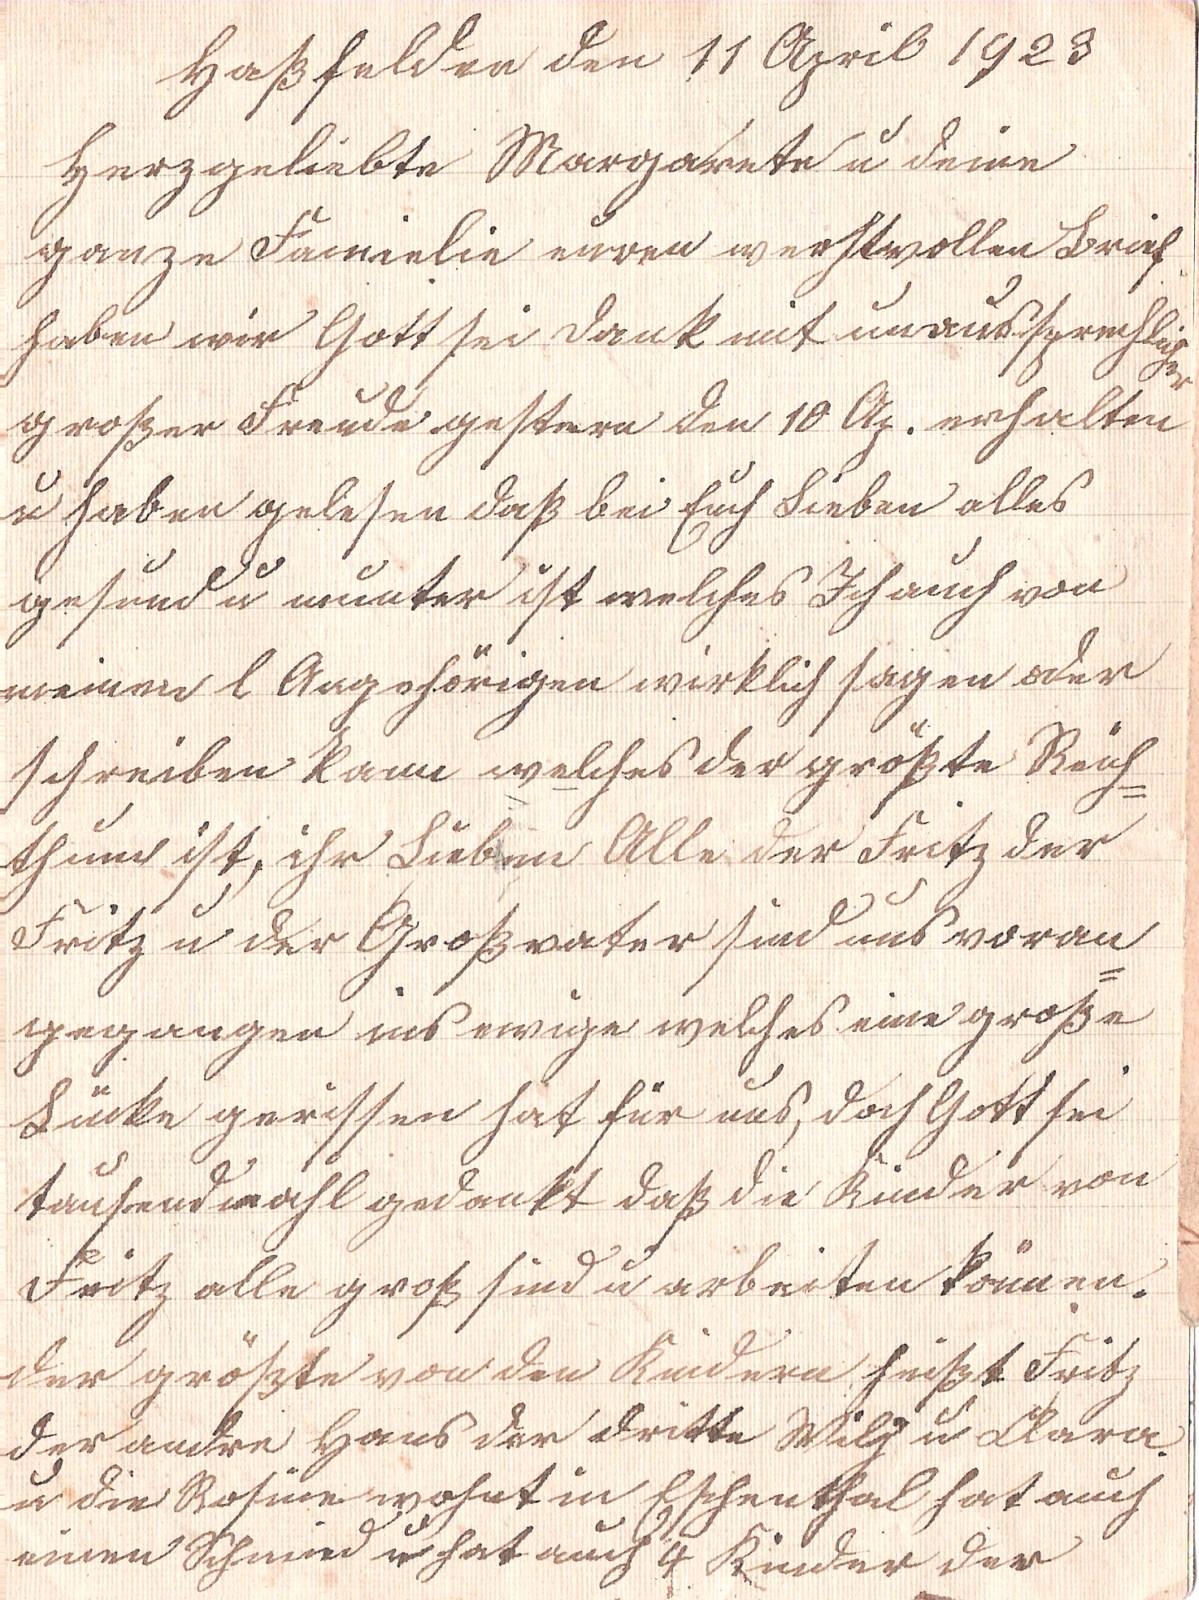 Haßfelden den 11 April 1923
Herzgeliebte Margarete u deine
ganze Famielie euren werthvollen Brief
haben wir Gott sei dank mit unaussprechlicher
großer Freude gestern den 10 Ap. erhalten
u haben gelesen daß bei Euch Lieben alles
gesund u munter ist welches Ich auch von
meinen l Angehörigen wirklich sagen oder
schreiben kann welches der größte Reich=
thum ist, ihr Lieben Alle der Fritz der
Fritz u der Großvater sind uns voran=
gegangen ins ewige welches eine große
Lücke gerissen hat für uns, doch Gott sei
tausendmahl gedankt daß die Kinder von
Fritz alle groß sind u arbeiten können.
der größte von den Kindern heißt Fritz
der andre Hans der dritte Wily u Clara.
u die Rosine wohnt in Eschenthal hat auch
einen Schmied u hat auch 4 Kinder der